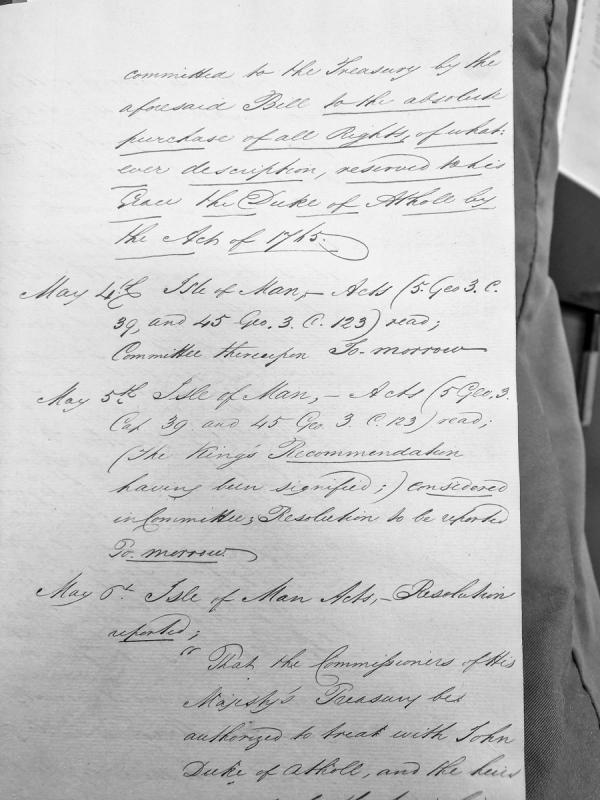 committed to the Treasury by the
aforesaid Bill to the absolute
purchase of all Rights, of what-
ever description, reserved to his
Grace the Duke of Atholl by
the Act of 1765.
May 4th Isle of Man, – Acts (5. Geo 3. C.
39, and 45 Geo. 3. C. 123) read;
Committee thereupon To-morrow
May 5th Isle of Man, – Acts (5 Geo. 3.
Cap 39 and 45 Geo. 3. C. 123) read;
(the King's Recommendation
having been signified;) considered
in Committee; Resolution to be reported
To-morrow
May 6th Isle of Man Acts, – Resolution
reported;
"That the Commissioners of His
Majesty's Treasury be
authorized to treat with John
Duke of Atholl, and the heirs